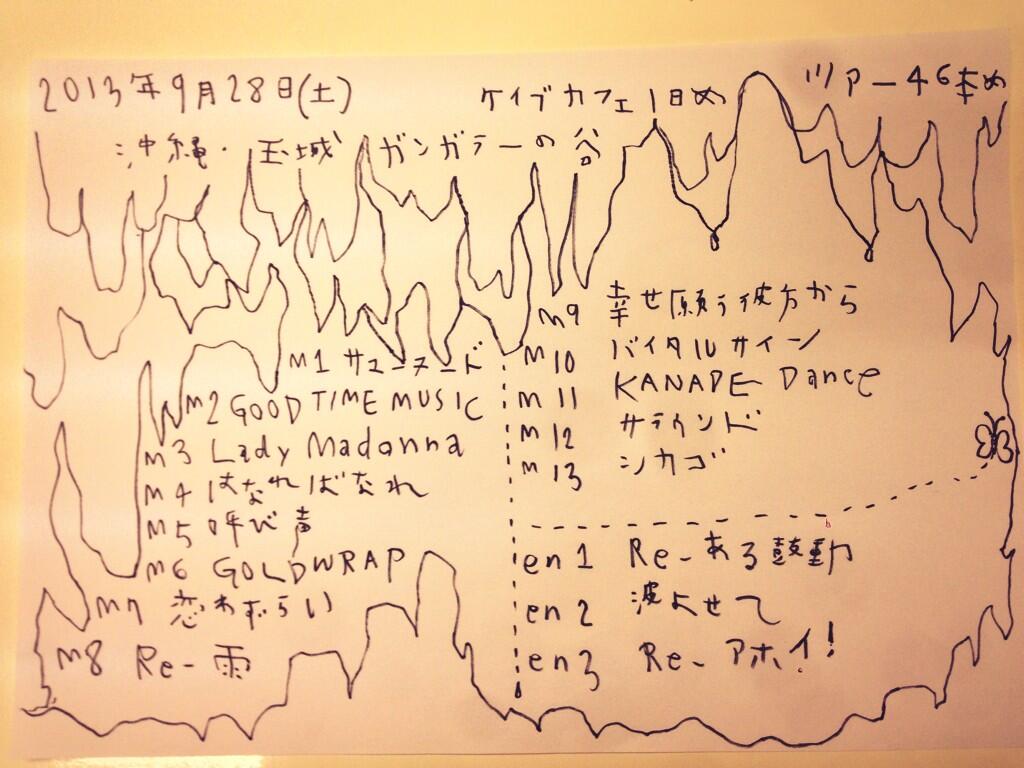 2013年9月28日(土)
ケイブカフェ1日め
ツアー46本め
沖縄・玉城 ガンガラーの谷
m1 サユーヌード
m2 GOOD TIME MUSIC
m3 Lady Madonna
m4 はなればなれ
m5 呼び声
m6 GOLD WRAP
m7 恋わずらい
m8 Re-雨
m9 幸せ願う彼方から
m10 バイタルサイン
m11 KANADE Dance
m12 サラウンド
m13 シカゴ
en1 Re-ある鼓動
en2 波よせて
en3 Re-アホイ!